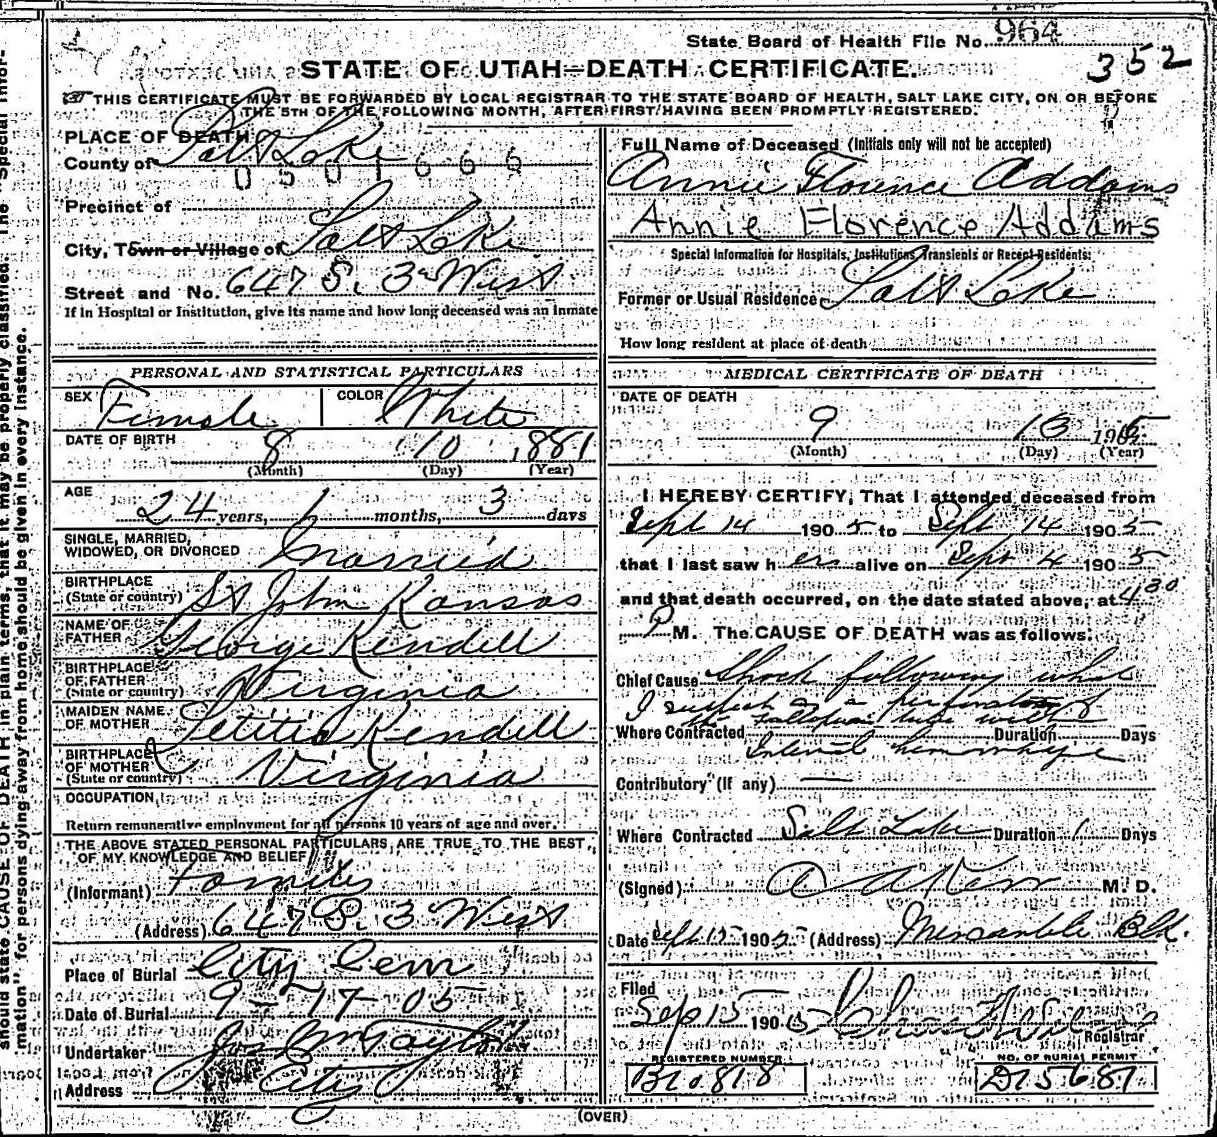 State Board of Health File No. 964
352
STATE OF UTAH—DEATH CERTIFICATE.
THIS CERTIFICATE MUST BE FORWARDED BY LOCAL REGISTRAR TO THE STATE BOARD OF HEALTH, SALT LAKE CITY, ON OR BEFORE
THE 5TH OF THE FOLLOWING MONTH, AFTER FIRST HAVING BEEN PROMPTLY REGISTERED.
PLACE OF DEATH
County of Salt Lake
0501666
Precinct of
City, Town or Village of Salt Lake
Street and No. 647 S. 3d West
If in Hospital or Institution, give its name and how long deceased was an inmate
Full Name of Deceased (Initials only will not be accepted)
Annie Florence Addams
Annie Florence Addams
Special Information for Hospitals, Institutions, Transients or Recent Residents:
Former or Usual Residence Salt Lake
How long resident at place of death
PERSONAL AND STATISTICAL PARTICULARS
SEX Female COLOR White
DATE OF BIRTH 8 10 1881
(Month) (Day) (Year)
AGE
24 years, 1 months, 3 days
SINGLE, MARRIED,
WIDOWED, OR DIVORCED Married
BIRTHPLACE
(State or country) St John Kansas
NAME OF
FATHER George Kendell
BIRTHPLACE
OF FATHER
(State or country) Virginia
MAIDEN NAME
OF MOTHER Letitia Kendell
BIRTHPLACE
OF MOTHER
(State or country) Virginia
OCCUPATION
Return remunerative employment for all persons 10 years of age and over.
THE ABOVE STATED PERSONAL PARTICULARS ARE TRUE TO THE BEST
OF MY KNOWLEDGE AND BELIEF
(Informant) Family
(Address) 647 S. 3d West
Place of Burial City Cem
Date of Burial 9-17-05
Undertaker Jos Wm Taylor
Address City
MEDICAL CERTIFICATE OF DEATH
DATE OF DEATH
9 13 1905
(Month) (Day) (Year)
I HEREBY CERTIFY, That I attended deceased from
Sept 14 1905 to Sept 14 1905
that I last saw her alive on Sept 4 1905
and that death occurred, on the date stated above, at 4 30
P M. The CAUSE OF DEATH was as follows:
Chief Cause Shock following what
I suspect is a perforation of
the fallopian tube with
Where Contracted Duration Days
Internal hemorrhage
Contributory (If any)
Where Contracted Salt Lake Duration 1 Days
(Signed) M. D.
Date Sept 15 1905 (Address) Mercantile Blk.
Filed
Sep 15 1905
Registrar
REGISTERED NUMBER
NO. OF BURIAL PERMIT
D15681
(OVER)
should state CAUSE OF DEATH in plain terms, that it may be properly classified. The "Special Infor-
mation" for persons dying away from home should be given in every instance.